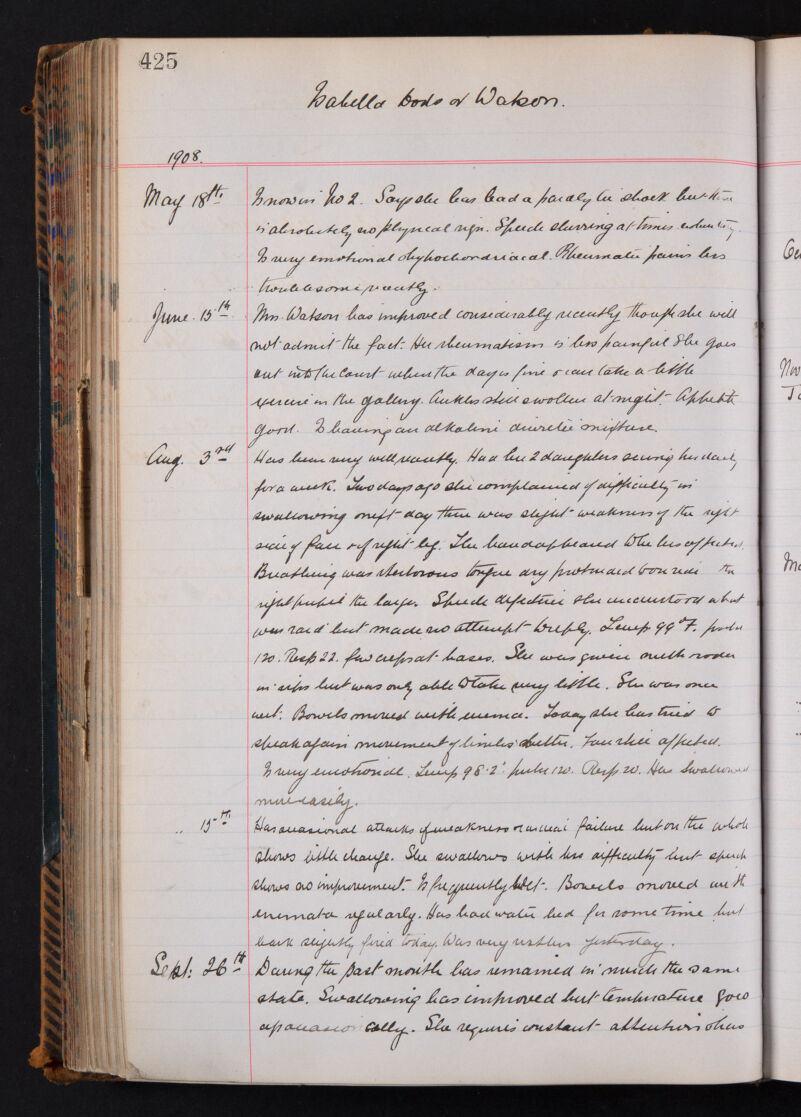 425
Isabella Dods or Watson.
1908.
May 18th Is now in No 2. Says she has had a paralytic shock but there
is absolutely no physical sign. Speech slurring at times
Is very emotional & hypochondriacal. Rheumatic pains less
troublesome recently.
June 15th Mrs. Watson has improved considerably recently though she will
not admit the fact. Her rheumatism is less painful & she goes
out into the Court when the day is fine & can take a little
exercise in the gallery. Ankles still swollen at night. Appetite
good. Is having an alkaline diuretic mixture.
Aug. 3rd Has been very well recently. Had her 2 daughters seeing her daily
for a week. Two days ago she complained of difficulty in
swallowing & next day there was slight weakness of the right
side of face & of right leg. The hand appeared to be less affected.
Breathing was stertorous tongue dry protruded to one side the
right pupil the larger. Speech defective she understood what
was said but made no attempt to reply. Temp 99°F. pulse
120. Resp 22. few creps at bases. She was given milk & soda
in sips but was only able to take very little. She was once
wet. Bowels moved with enema. Today she has tried to
speak again movement of limbs better. Face still affected.
Is very emotional. Temp 98.2° pulse 120. Resp 20. Has swallowed
more easily.
" 15th Has occasional attacks of weakness & cardiac failure but on the whole
shows little change. She swallows with less difficulty but speech
shows no improvement. Is frequently wet. Bowels moved with
enemata regularly. Has had water bed for some time but
back slightly today. Was very restless yesterday.
Sept: 26th During the past month has remained in much the same
state. Swallowing has improved but temperature goes
up occasionally. She requires constant attention & has